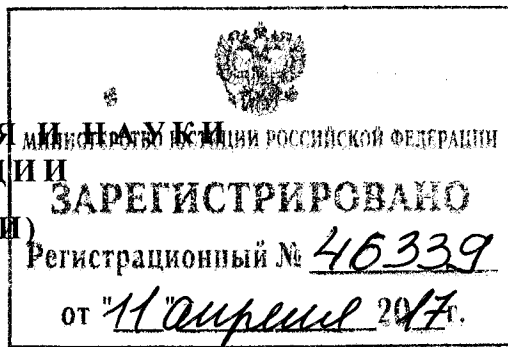 Я И НАУКИ
МИНИСТЕРСТВО ЮСТИЦИИ РОССИЙСКОЙ ФЕДЕРАЦИИ
ЦИИ
ЗАРЕГИСТРИРОВАНО
И)
Регистрационный № 46339
от "11" апреля 2017г.